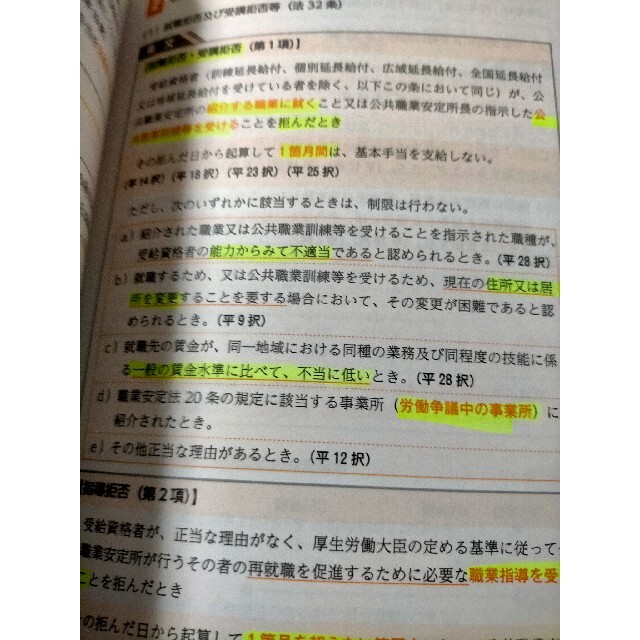 (1) 就職拒否及び受講拒否等（法32条）
条文
職拒否・受講拒否（第1項）】
受給資格者（訓練延長給付、個別延長給付、広域延長給付、全国延長給付
又は地域延長給付を受けている者を除く、以下この条において同じ）が、公
共職業安定所の紹介する職業に就くこと又は公共職業安定所長の指示した公
共職業訓練等を受けることを拒んだとき
その拒んだ日から起算して1箇月間は、基本手当を支給しない。
（平14択）（平18択）（平23択）（平25択）
ただし、次のいずれかに該当するときは、制限は行わない。
a）紹介された職業又は公共職業訓練等を受けることを指示された職種が、
受給資格者の能力からみて不適当であると認められるとき。（平28択）
b）就職するため、又は公共職業訓練等を受けるため、現在の住所又は居
所を変更することを要する場合において、その変更が困難であると認
められるとき。（平9択）
c）就職先の賃金が、同一地域における同種の業務及び同程度の技能に係
る一般の賃金水準に比べて、不当に低いとき。（平28択）
d）職業安定法20条の規定に該当する事業所（労働争議中の事業所）に
紹介されたとき。
e）その他正当な理由があるとき。（平12択）
指導拒否（第2項）】
受給資格者が、正当な理由がなく、厚生労働大臣の定める基準に従って
職業安定所が行うその者の再就職を促進するために必要な職業指導を受
ことを拒んだとき
の拒んだ日から起算して1箇月を超えない範囲